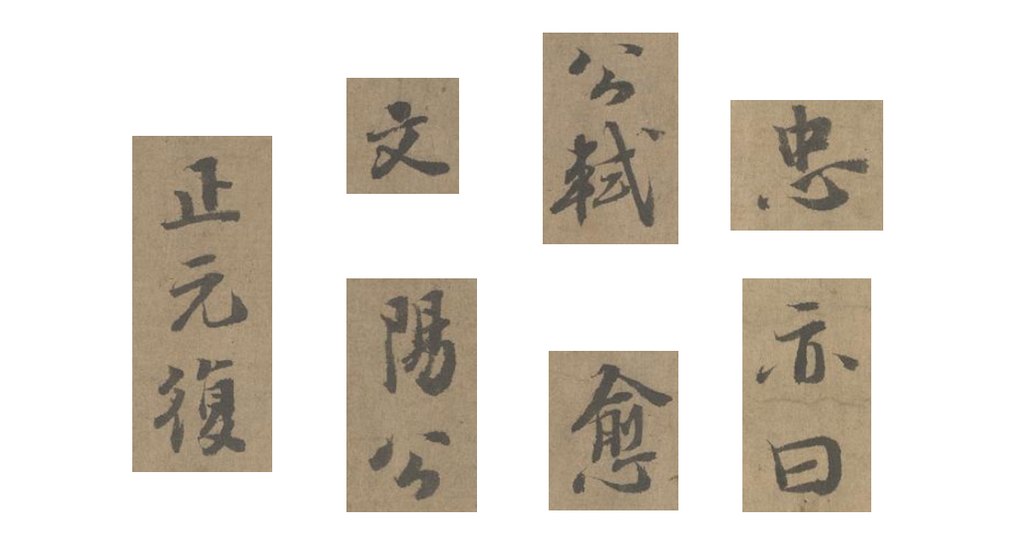 忠
亦曰
公軾
愈
文
陽公
正元復